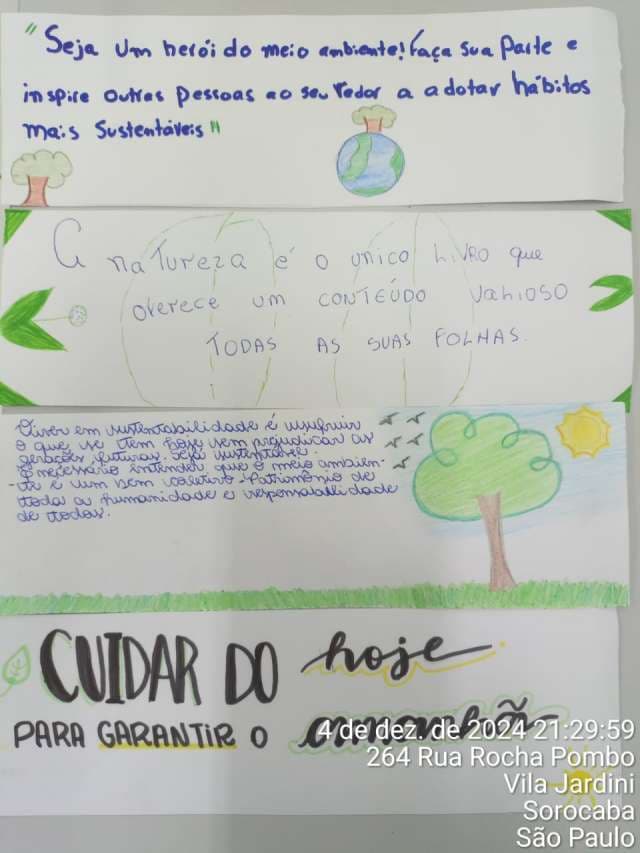 "Seja um herói do meio ambiente! Faça sua parte e
inspire outras pessoas ao seu redor a adotar hábitos
mais sustentáveis"
A natureza é o único livro que
oferece um conteúdo valioso
todas as suas folhas.
Viver em sustentabilidade é usufruir
o que se tem hoje sem prejudicar as
gerações futuras. Seja sustentável.
É necessário entender que o meio ambien-
-te é um bem coletivo. Patrimônio de
toda a humanidade e responsabilidade
de todos.
CUIDAR DO hoje
PARA GARANTIR O amanhã
4 de dez. de 2024 21:29:59
264 Rua Rocha Pombo
Vila Jardini
Sorocaba
São Paulo